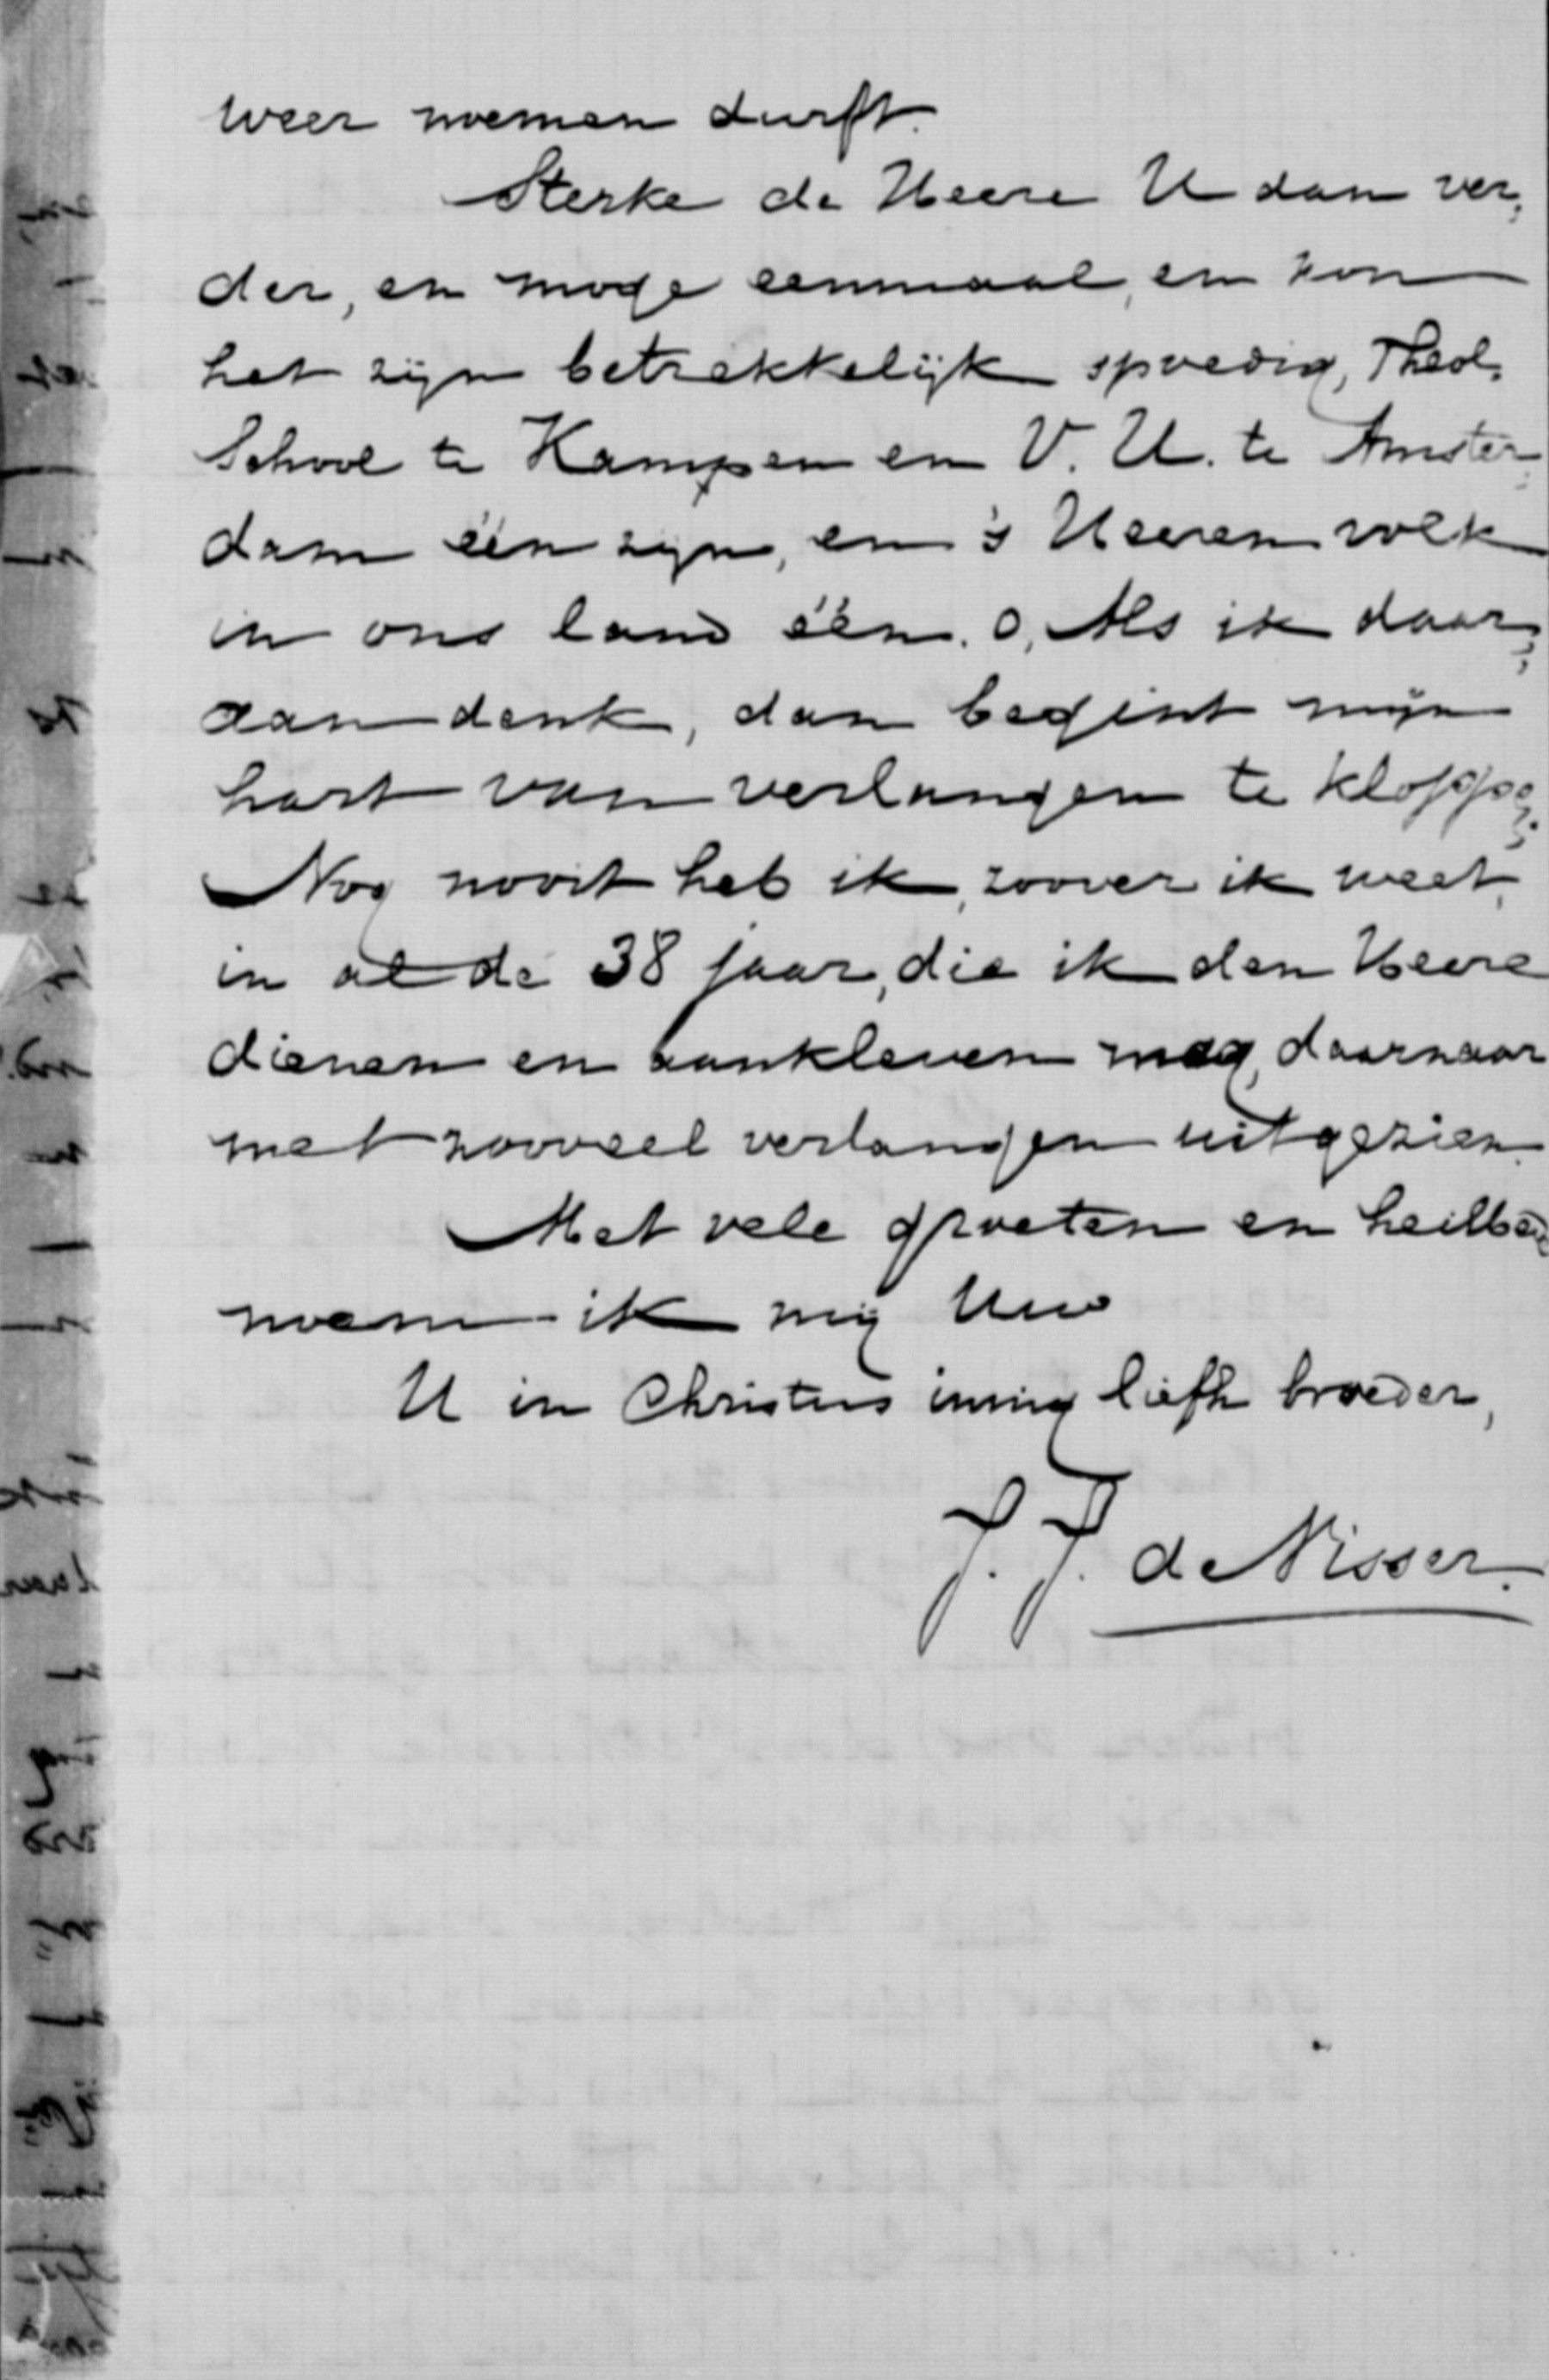 weer noemen durft.
Sterke de Heere U dan ver-
der, en moge eenmaal, en kon
het zijn betrekkelijk spoedig, Theol.
School te Kampen en V. U. te Amster-
dam één zijn, en 's Heeren volk
in ons land één. O, Als ik daar-
aan denk, dan begint mijn
hart van verlangen te kloppen.
Nog nooit heb ik, zoover ik weet,
in al de 38 jaar, die ik den Heere
dienen en aankleven mag, daarnaar
met zooveel verlangen uitgezien.
Met vele groeten en heilbede
noem ik mij Uw
U in Christus innig liefh. broeder,
J. J. de Visser.